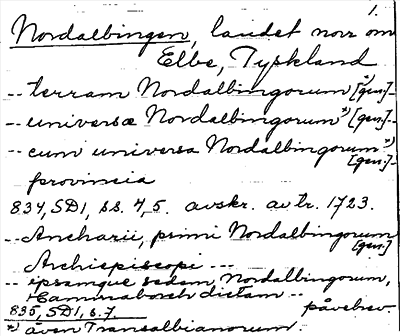 1.
Nordalbingen, landet norr om
Elbe, Tyskland
-- terram Nordalbingorum x) [gen.] -
-- universæ Nordalbingorum x) [gen.] -
-- cum universa Nordalbingorum x)
[gen.]
provincia
834, SD1, ss. 4, 5. avskr. av tr. 1723.
-- Ancharii, primi Nordalbingorum
[gen.]
Archiepiscopi ---
-- ipsamque sedem, Nordalbingorum,
Hammaborch dictam --
835, SD1, s. 7. påvebrev.
x) även Transalbianorum